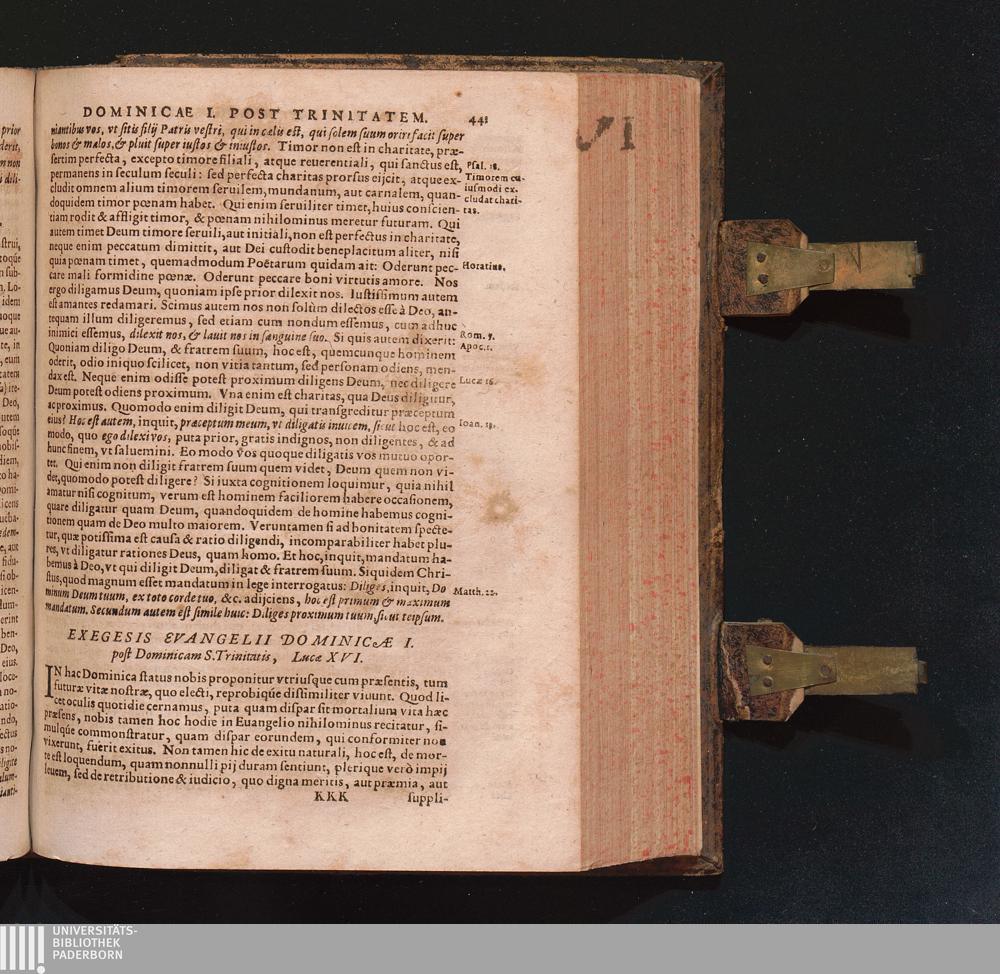 DOMINICAE I. POST TRINITATEM. 441
niantibus vos, vt sitis filij Patris vestri, qui in cælis est, qui solem suum oriri facit super
bonos & malos, & pluit super iustos & iniustos. Timor non est in charitate, præ-
sertim perfecta, excepto timore filiali, atque reuerentiali, qui sanctus est,
permanens in seculum seculi: sed perfecta charitas prorsus eijcit, atque ex-
cludit omnem alium timorem seruilem, mundanum, aut carnalem, quan-
doquidem timor pœnam habet. Qui enim seruiliter timet, huius conscien-
tiam rodit & affligit timor, & pœnam nihilominus meretur futuram. Qui
autem timet Deum timore seruili, aut initiali, non est perfectus in charitate,
neque enim peccatum dimittit, aut Dei custodit beneplacitum aliter, nisi
quia pœnam timet, quemadmodum Poëtarum quidam ait: Oderunt pec-
care mali formidine pœnæ. Oderunt peccare boni virtutis amore. Nos
ergo diligamus Deum, quoniam ipse prior dilexit nos. Iustissimum autem
est amantes redamari. Scimus autem nos non solùm dilectos esse à Deo, an-
tequam illum diligeremus, sed etiam cum nondum essemus, cum adhuc
inimici essemus, dilexit nos, & lauit nos in sanguine suo. Si quis autem dixerit:
Quoniam diligo Deum, & fratrem suum, hoc est, quemcunque hominem
oderit, odio iniquo scilicet, non vitia tantum, sed personam odiens, men-
dax est. Neque enim odisse potest proximum diligens Deum, nec diligere
Deum potest odiens proximum. Vna enim est charitas, qua Deus diligitur,
ac proximus. Quomodo enim diligit Deum, qui transgreditur præceptum
eius? Hoc est autem, inquit, præceptum meum, vt diligatis inuicem, sicut hoc est, eo
modo, quo ego dilexi vos, puta prior, gratis indignos, non diligentes, & ad
hunc finem, vt saluemini. Eo modo vos quoque diligatis vos mutuo opor-
tet. Qui enim non diligit fratrem suum quem videt, Deum quem non vi-
det, quomodo potest diligere? Si iuxta cognitionem loquimur, quia nihil
amatur nisi cognitum, verum est hominem faciliorem habere occasionem,
quare diligatur quam Deum, quandoquidem de homine habemus cogni-
tionem quam de Deo multo maiorem. Veruntamen si ad bonitatem specte-
tur, quæ potissima est causa & ratio diligendi, incomparabiliter habet plu-
res, vt diligatur rationes Deus, quam homo. Et hoc, inquit, mandatum ha-
bemus à Deo, vt qui diligit Deum, diligat & fratrem suum. Siquidem Chri-
stus, quod magnum esset mandatum in lege interrogatus: Diliges, inquit, Do
minum Deum tuum, ex toto corde tuo, &c. adijciens, hoc est primum & maximum
mandatum. Secundum autem est simile huic: Diliges proximum tuum, sicut teipsum.
Psal. 18.
Timorem cu-
iusmodi ex-
cludat chari-
tas.
Horatius.
Rom. 5.
Apoc. 1.
Lucæ 16.
Ioan. 13.
Matth. 22.
EXEGESIS EVANGELII DOMINICÆ I.
post Dominicam S. Trinitatis, Lucæ XVI.
IN hac Dominica status nobis proponitur vtriusque cum præsentis, tum
futuræ vitæ nostræ, quo electi, reprobique dissimiliter viuunt. Quod li-
cet oculis quotidie cernamus, puta quam dispar sit mortalium vita hæc
præsens, nobis tamen hoc hodie in Euangelio nihilominus recitatur, si-
mulque commonstratur, quam dispar eorundem, qui conformiter non
vixerunt, fuerit exitus. Non tamen hic de exitu naturali, hoc est, de mor-
te est loquendum, quam nonnulli pij duram sentiunt, plerique verò impij
leuem, sed de retributione & iudicio, quo digna meritis, aut præmia, aut
KKK suppli-
VI
UNIVERSITÄTS-
BIBLIOTHEK
PADERBORN